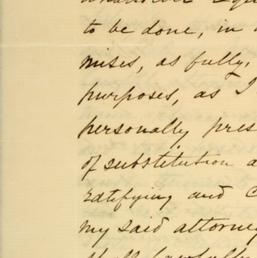 to be done, in
mises, as fully,
purposes, as I
personally pres
of substitution a
ratifying and C
my said attorney
shall lawfully